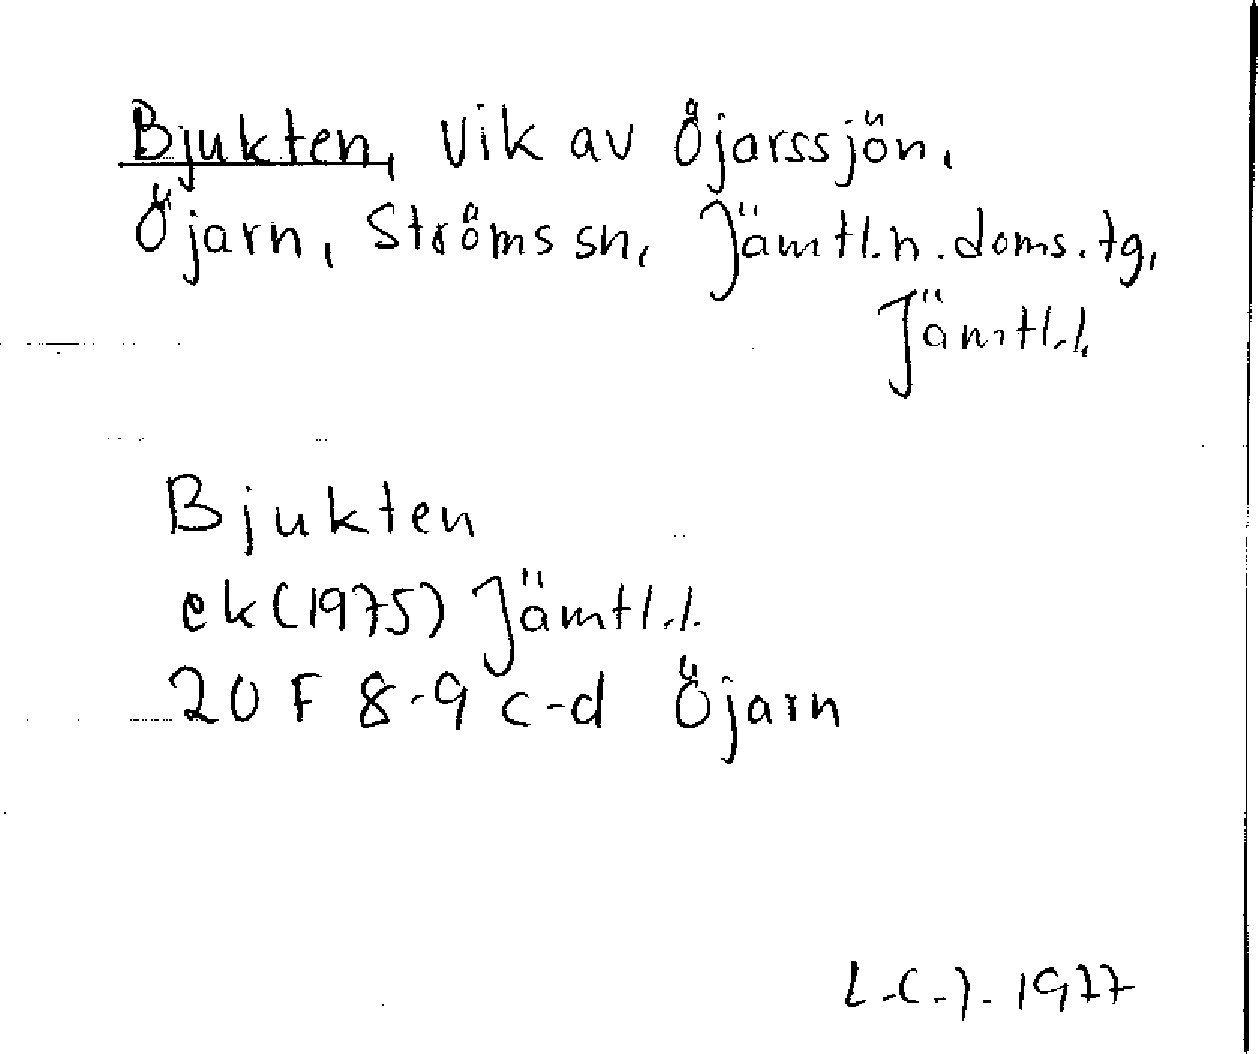 Bjukten, vik av Öjarssjön,
Öjarn, Ströms sn, Jämtl.n.doms.tg,
Jämtl.l.
Bjukten
ek (1975) Jämtl.l.
20 F 8-9 c-d Öjarn
L.C.J. 1977